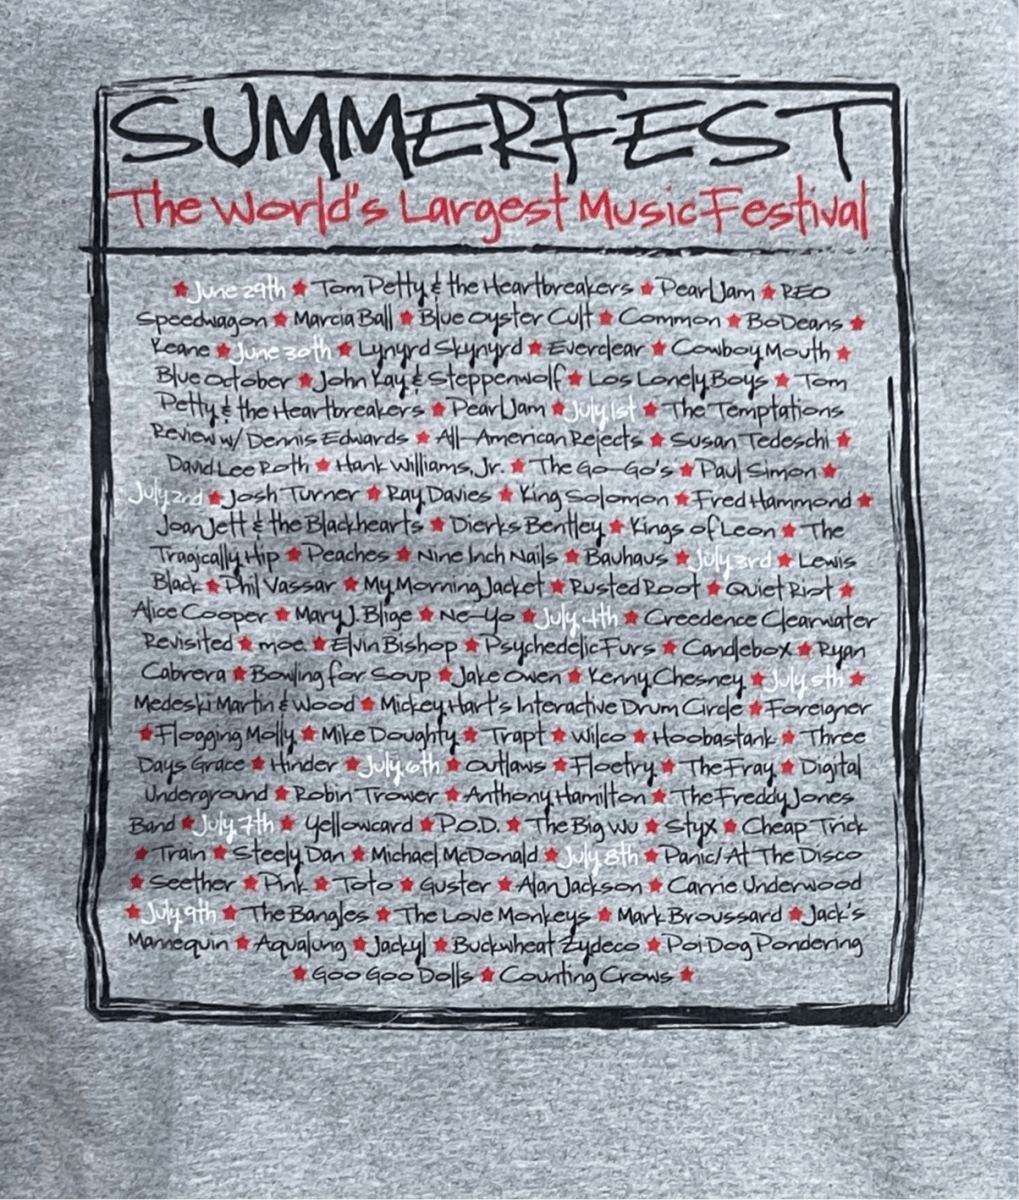 SUMMERFEST
The World's Largest Music Festival
★ June 29th ★ Tom Petty & the Heartbreakers ★ Pearl Jam ★ REO
Speedwagon ★ Marcia Ball ★ Blue Oyster Cult ★ Common ★ BoDeans ★
Keane ★ June 30th ★ Lynyrd Skynyrd ★ Everclear ★ Cowboy Mouth ★
Blue October ★ John Kay & Steppenwolf ★ Los Lonely Boys ★ Tom
Petty & the Heartbreakers ★ Pearl Jam ★ July 1st ★ The Temptations
Review w/ Dennis Edwards ★ All-American Rejects ★ Susan Tedeschi ★
David Lee Roth ★ Hank Williams, Jr. ★ The Go-Go's ★ Paul Simon ★
July 2nd ★ Josh Turner ★ Ray Davies ★ King Solomon ★ Fred Hammond ★
Joan Jett & the Blackhearts ★ Dierks Bentley ★ Kings of Leon ★ The
Tragically Hip ★ Peaches ★ Nine Inch Nails ★ Bauhaus ★ July 3rd ★ Lewis
Black ★ Phil Vassar ★ My Morning Jacket ★ Rusted Root ★ Quiet Riot ★
Alice Cooper ★ Mary J. Blige ★ Ne-Yo ★ July 4th ★ Creedence Clearwater
Revisited ★ moe. ★ Elvin Bishop ★ Psychedelic Furs ★ Candlebox ★ Ryan
Cabrera ★ Bowling for Soup ★ Jake Owen ★ Kenny Chesney ★ July 5th ★
Medeski Martin & Wood ★ Mickey Hart's Interactive Drum Circle ★ Foreigner
★ Flogging Molly ★ Mike Doughty ★ Trapt ★ Wilco ★ Hoobastank ★ Three
Days Grace ★ Hinder ★ July 6th ★ Outlaws ★ Floetry ★ The Fray ★ Digital
Underground ★ Robin Trower ★ Anthony Hamilton ★ The Freddy Jones
Band ★ July 7th ★ Yellowcard ★ P.O.D. ★ The Big Wu ★ Styx ★ Cheap Trick
★ Train ★ Steely Dan ★ Michael McDonald ★ July 8th ★ Panic! At The Disco
★ Seether ★ Pink ★ Toto ★ Guster ★ Alan Jackson ★ Carrie Underwood
★ July 9th ★ The Bangles ★ The Love Monkeys ★ Mark Broussard ★ Jack's
Mannequin ★ Aqualung ★ Jackyl ★ Buckwheat Zydeco ★ Poi Dog Pondering
★ Goo Goo Dolls ★ Counting Crows ★